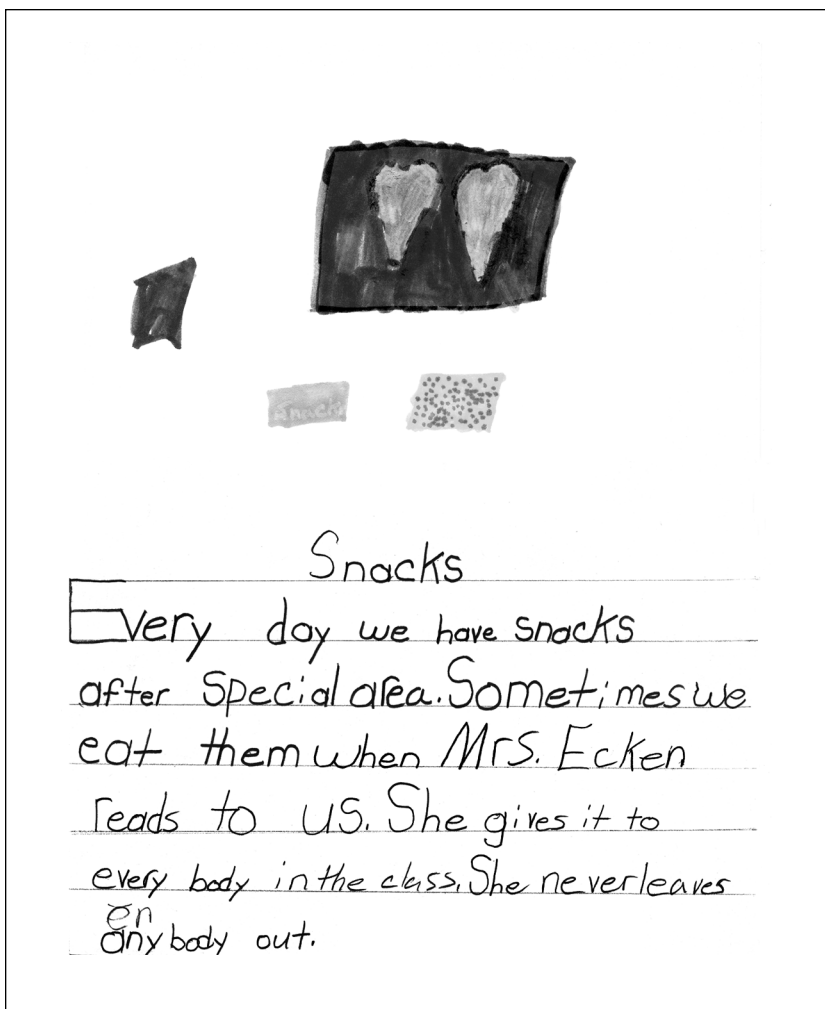 Snacks
Snacks
Every day we have snacks
after special area. Sometimes we
eat them when Mrs. Ecken
reads to us. She gives it to
every body in the class. She never leaves
en
any body out.